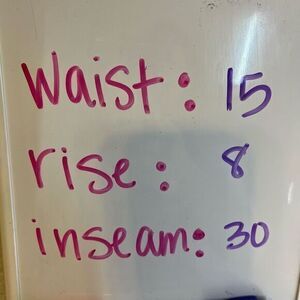 Waist: 15
rise: 8
inseam: 30